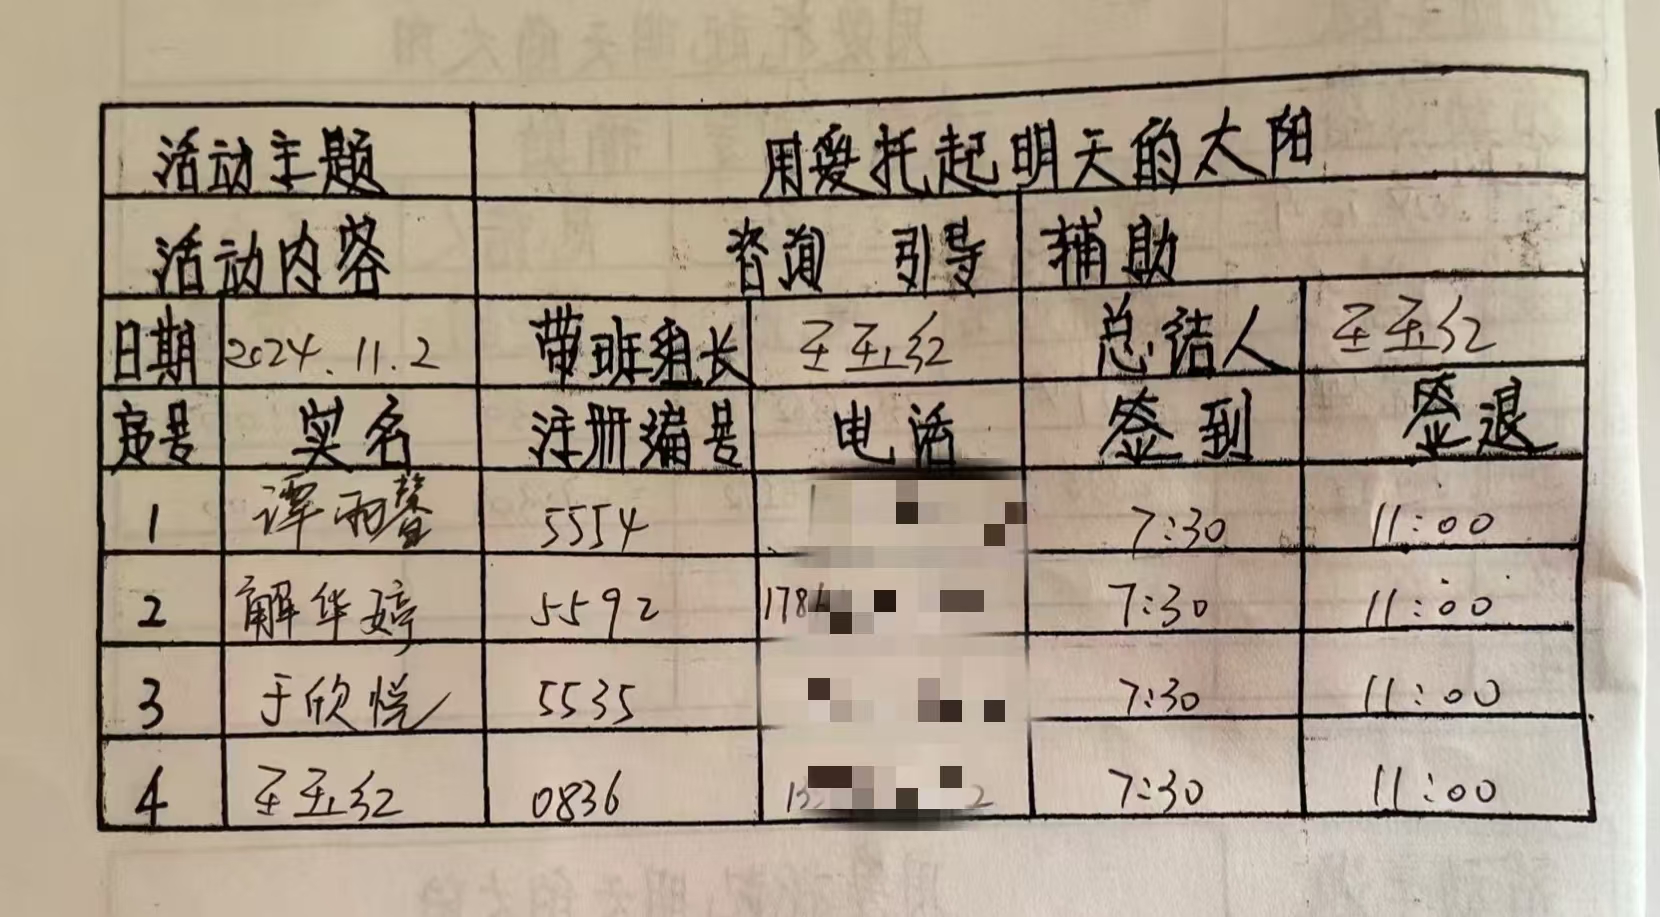 活动主题 用爱托起明天的太阳
活动内容 咨询 引导 辅助
日期 2024.11.2 带班组长 王玉红 总结人 王玉红
序号 实名 注册编号 电话 签到 签退
1 谭雨馨 5554 7:30 11:00
2 解华婷 5592 178 7:30 11:00
3 于欣悦 5535 7:30 11:00
4 王玉红 0836 13 2 7:30 11:00